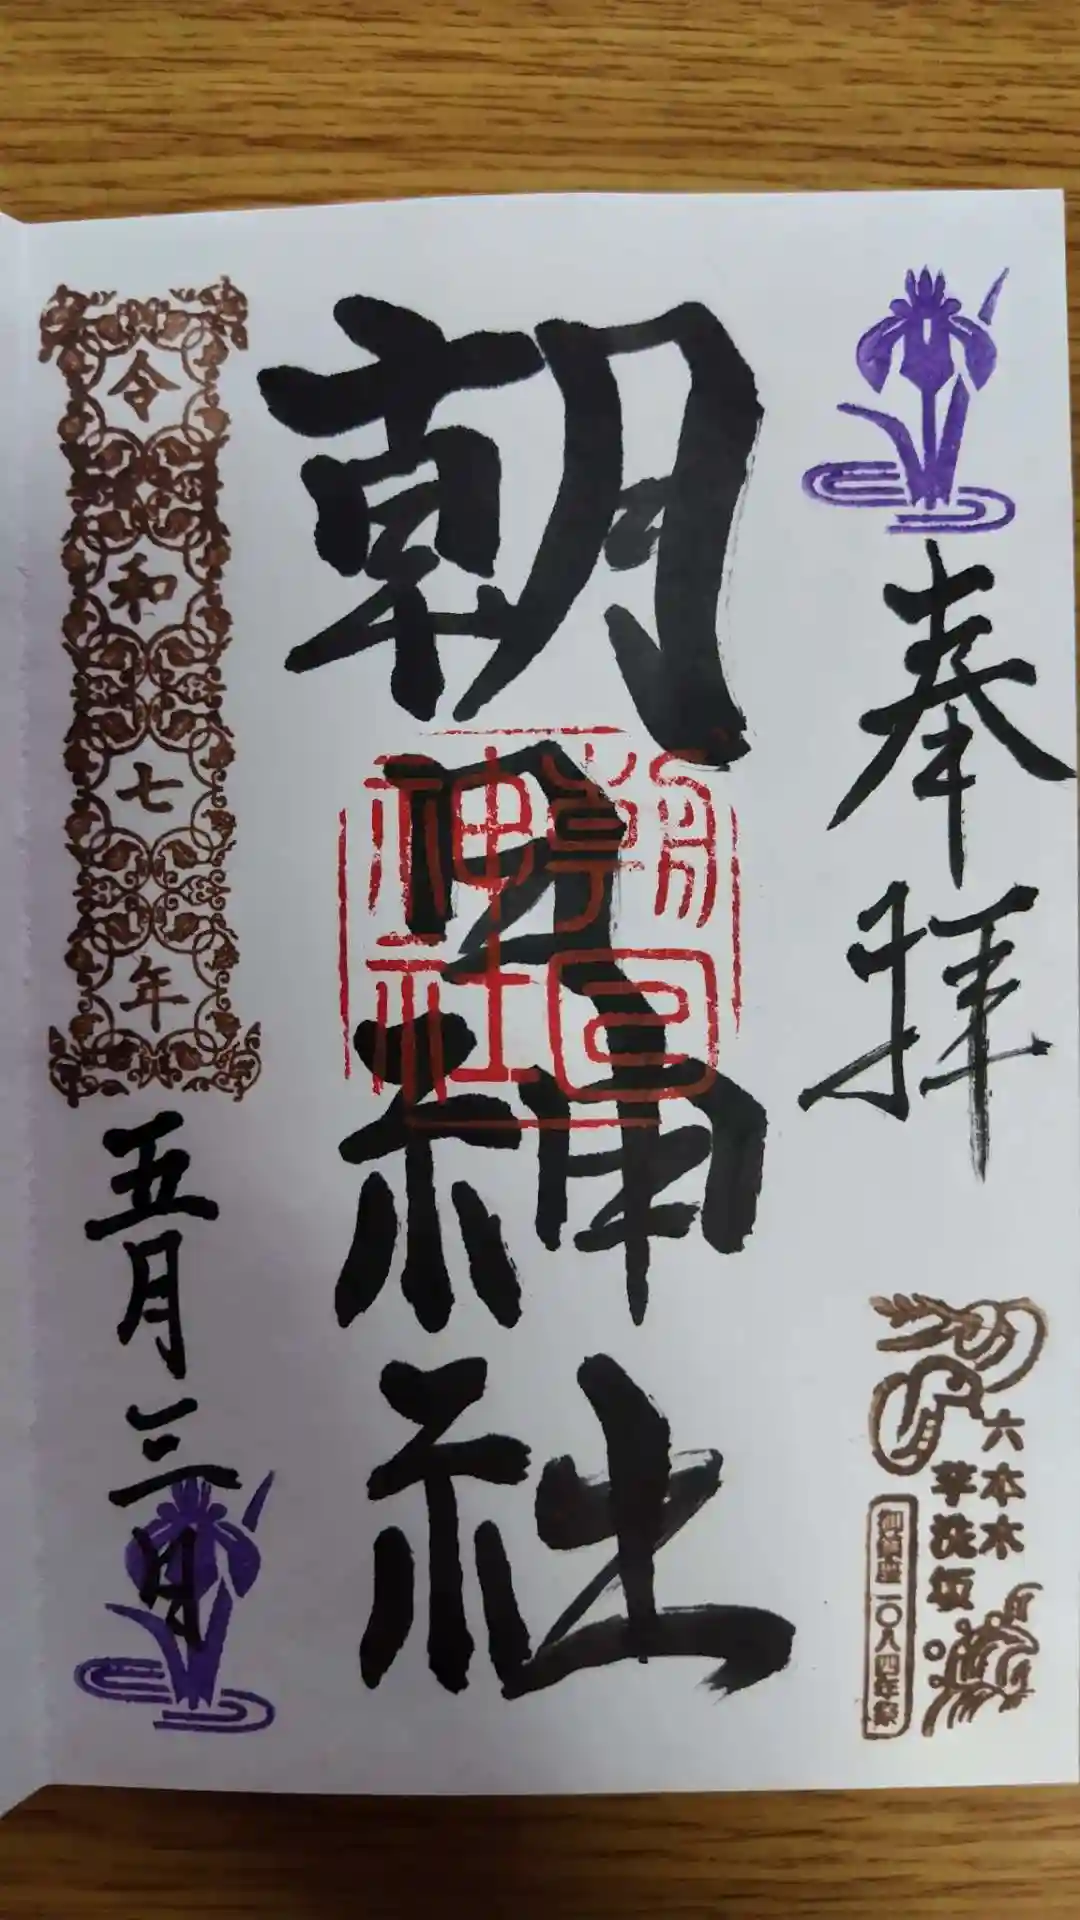 奉拝
六本木
芋洗坂
御鎮座一〇八四年祭
朝日神社
朝日
神社
令和七年
五月三日